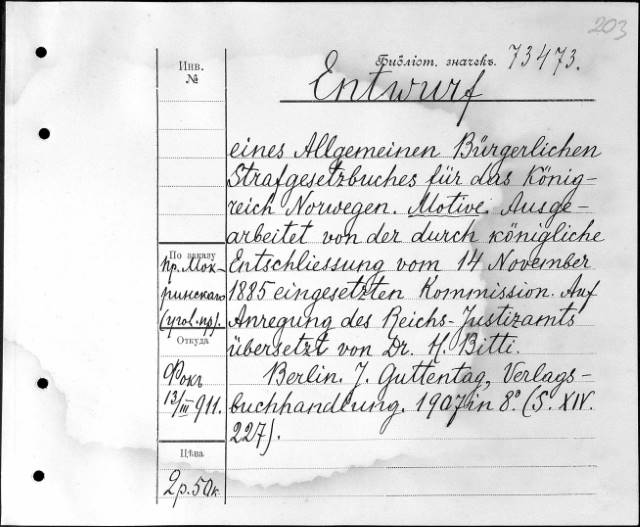 203
Инв.
№
Библіот. значекъ. 73473.
Entwurf
eines Allgemeinen Bürgerlichen
Strafgesetzbuches für das König-
reich Norwegen. Motive. Ausge-
arbeitet von der durch königliche
Entschliessung vom 14 November
1885 eingesetzten Kommission. Auf
Anregung des Reichs-Justizamts
übersetzt von Dr. H. Bitti.
Berlin. J. Guttentag, Verlags-
buchhandlung. 1907 in 8° (S. XIV.
227).
По заказу
пр. Мок-
ринскаго
(угол. пр).
Откуда
Фокъ
13/III 911.
Цѣна
2 р. 50 к.